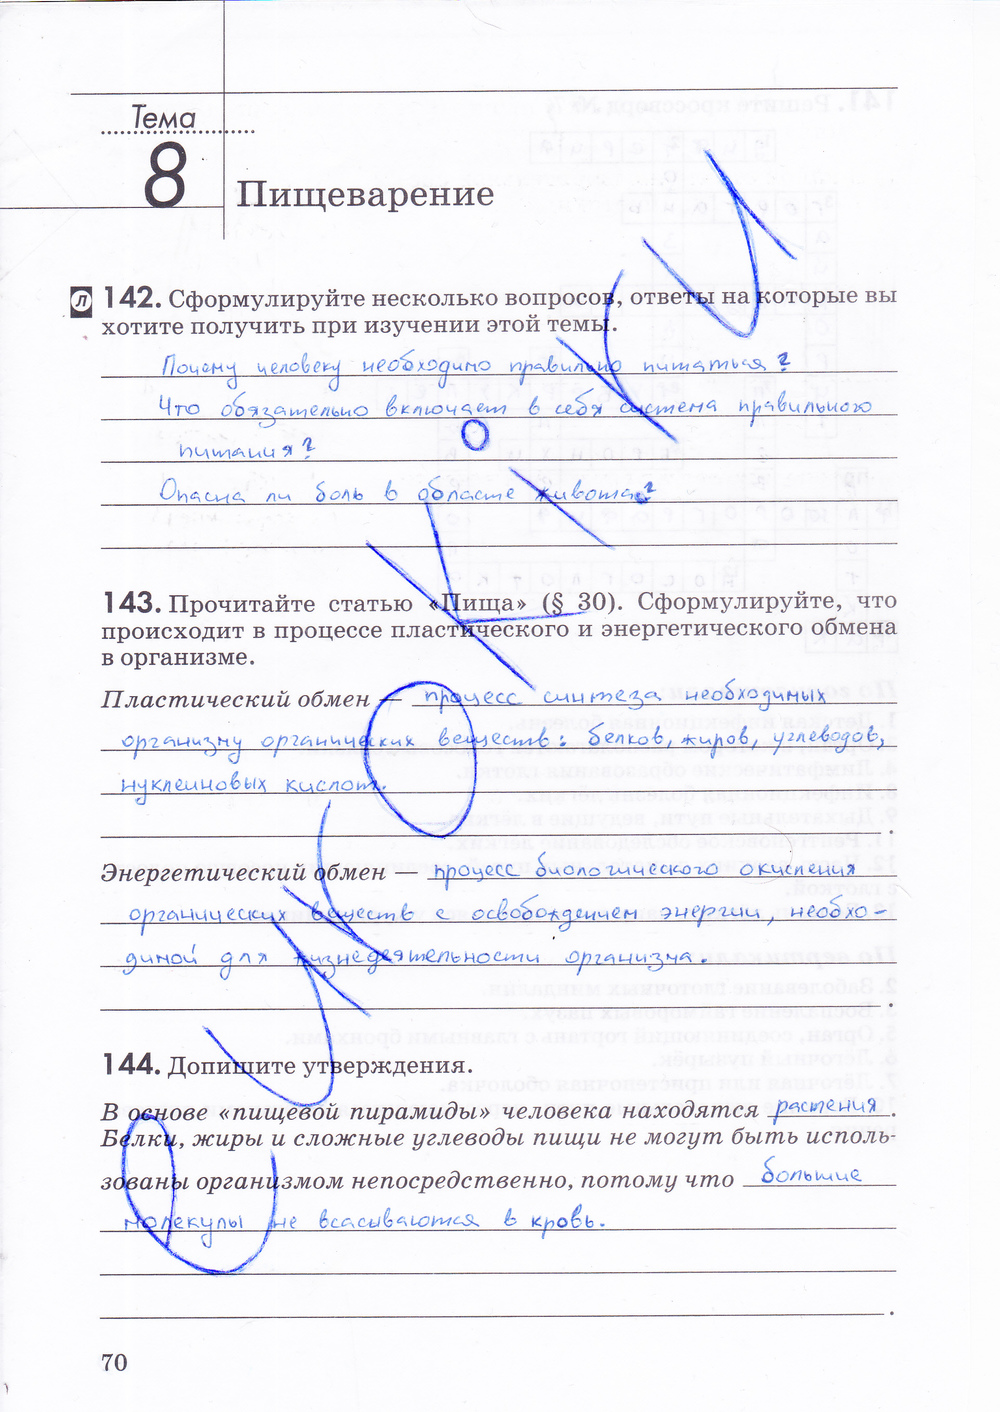 Тема
8
Пищеварение
л 142. Сформулируйте несколько вопросов, ответы на которые вы
хотите получить при изучении этой темы.
Почему человеку необходимо правильно питаться?
Что обязательно включает в себя система правильного
питания?
Опасна ли боль в области живота?
143. Прочитайте статью «Пища» (§ 30). Сформулируйте, что
происходит в процессе пластического и энергетического обмена
в организме.
Пластический обмен — процесс синтеза необходимых
организму органических веществ: белков, жиров, углеводов,
нуклеиновых кислот.
.
Энергетический обмен — процесс биологического окисления
органических веществ с освобождением энергии, необхо-
димой для жизнедеятельности организма.
.
144. Допишите утверждения.
В основе «пищевой пирамиды» человека находятся растения.
Белки, жиры и сложные углеводы пищи не могут быть исполь-
зованы организмом непосредственно, потому что большие
молекулы не всасываются в кровь.
.
70